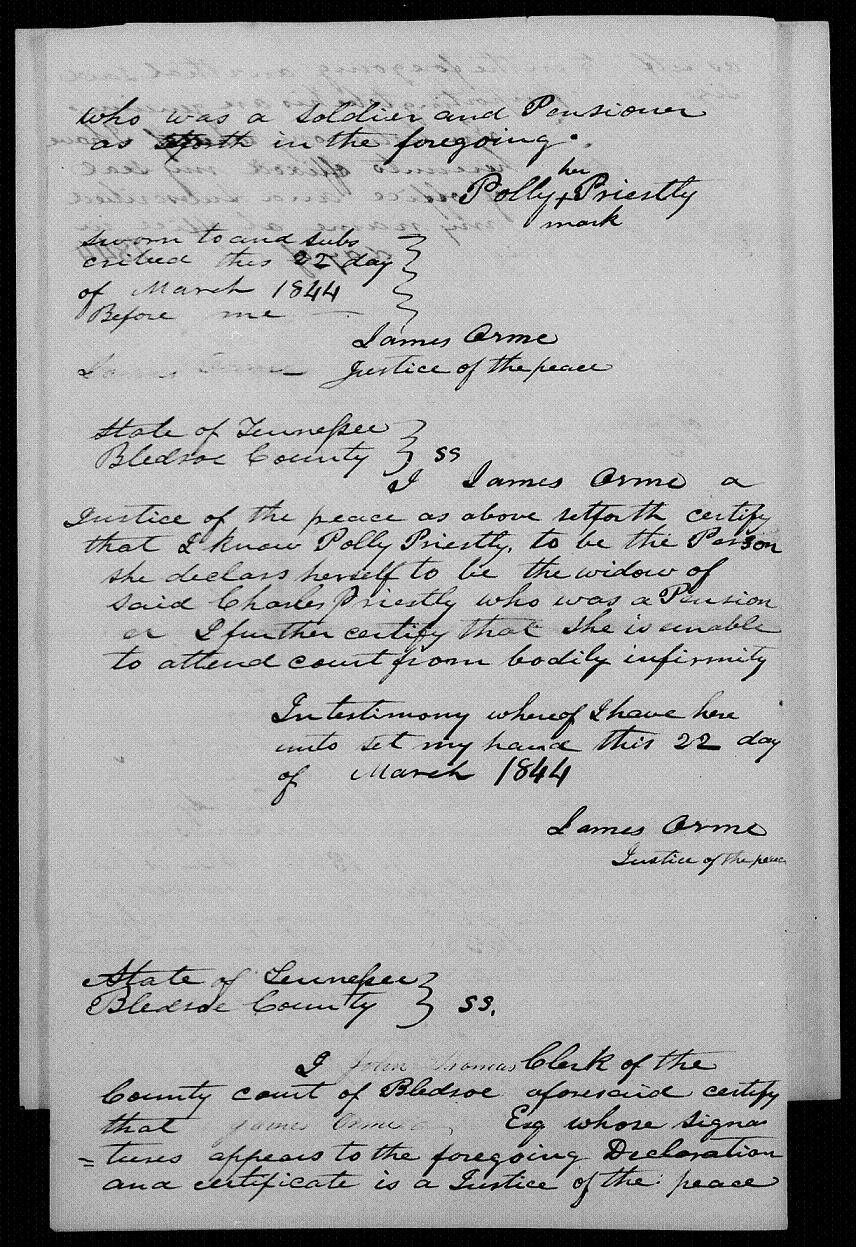 who was a Soldier and Pensioner
as in the foregoing.
her
Polly + Priestly
mark
Sworn to and subs
cribed this 22 day
of March 1844
Before me
James Orme
Justice of the peace
State of Tennessee
Bledsoe County } ss
I James Orme a
Justice of the peace as above setforth certify
that I know Polly Priestly, to be the Person
she declars herself to be the widow of
said Charles Priestly who was a Pension
er I further certify that She is unable
to attend court from bodily infirmity
In testimony whereof I have here
unto set my hand this 22 day
of March 1844
James Orme
Justice of the peace
State of Tennessee
Bledsoe County } ss.
I John Thomas Clerk of the
County court of Bledsoe aforesaid certify
that James Orme Esq whose signa
=tures appears to the foregoing Declaration
and certificate is a Justice of the peace